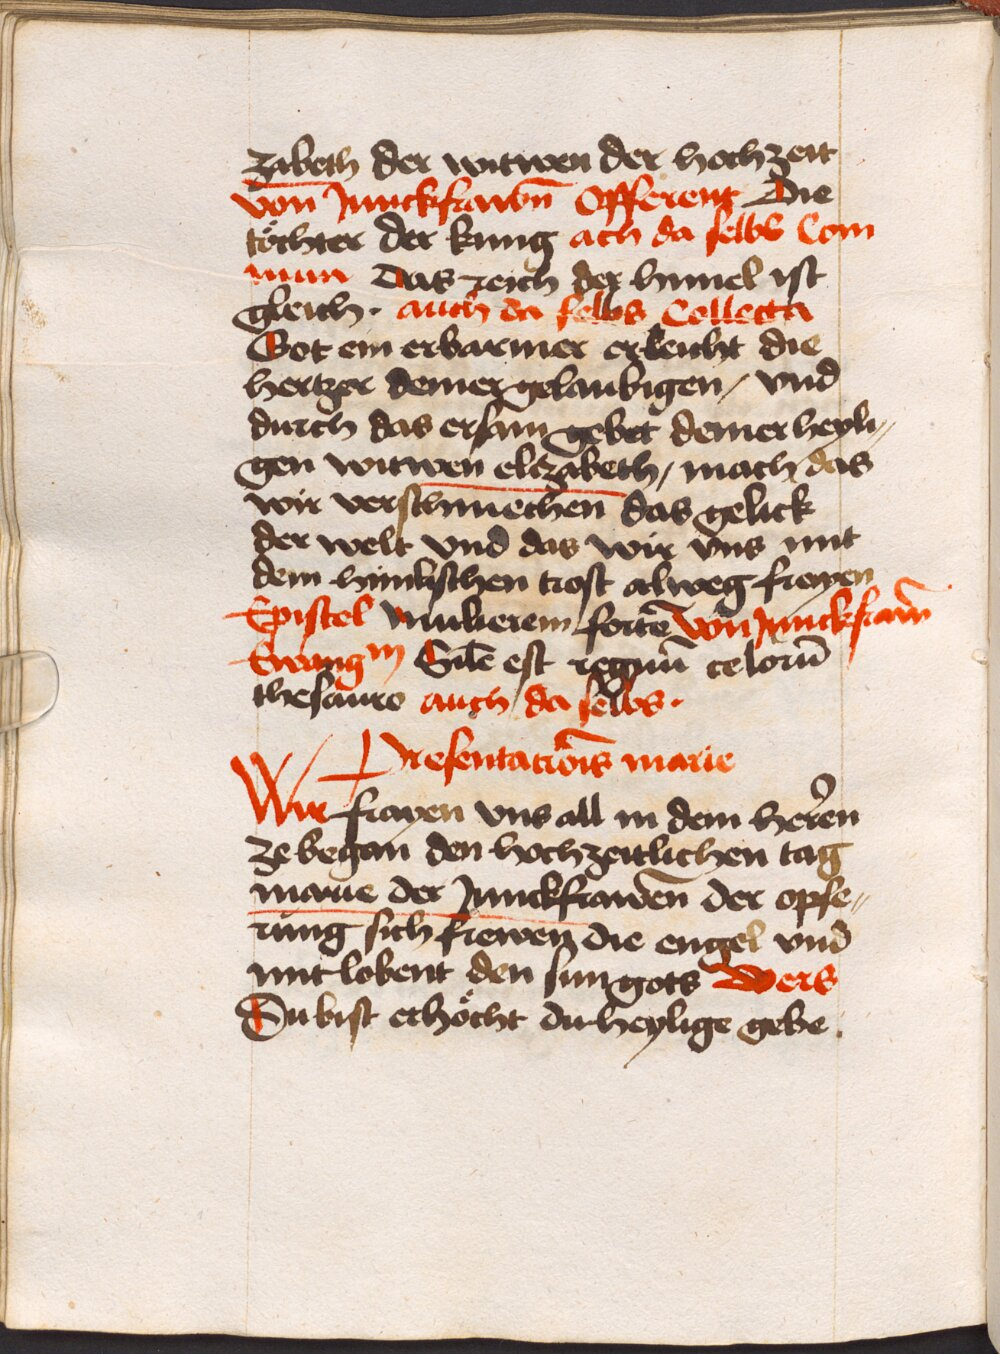 zabeth der witwen der hochzeit
von Junckfrawn̄ Offerent Die
tӧchter der kung ach da selbs Com
mun Das reich der himel ist
gleich · auch da selbs Collecta
Got ein erbarmer erleucht die
hertzer deiner gelaubigen / vnd
durch das ersam gebet deiner heyli〃
gen witwen elizabeth / mach das
wir verschmechen das gelick
der welt vnd das wir vns mit
dem himlischen trost alweg frayen
Epistel Mulierem fortē Von Junckfraw̄
Ewangm Sil̄e est regnū celorū
thesauro auch da selbs ·
Presentacōis marie
Wir frayen vns all in dem herren
ze began den hochzeitlichen tag
marie der Junckfrawen̄ der opfe〃
rung sich frewen die engel vnd
mit lobent den sun gots Vers
Du bist erhӧcht du heylige gebe .